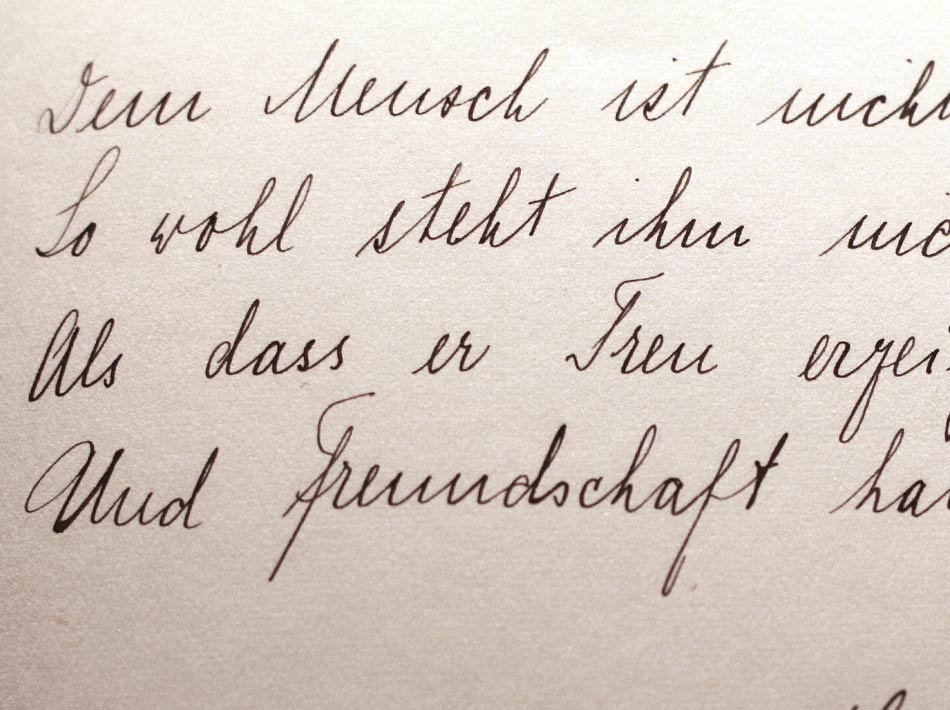 Dem Mensch ist nich
So wohl steht ihm nic
Als dass er Treu erzei
Und Freundschaft ha